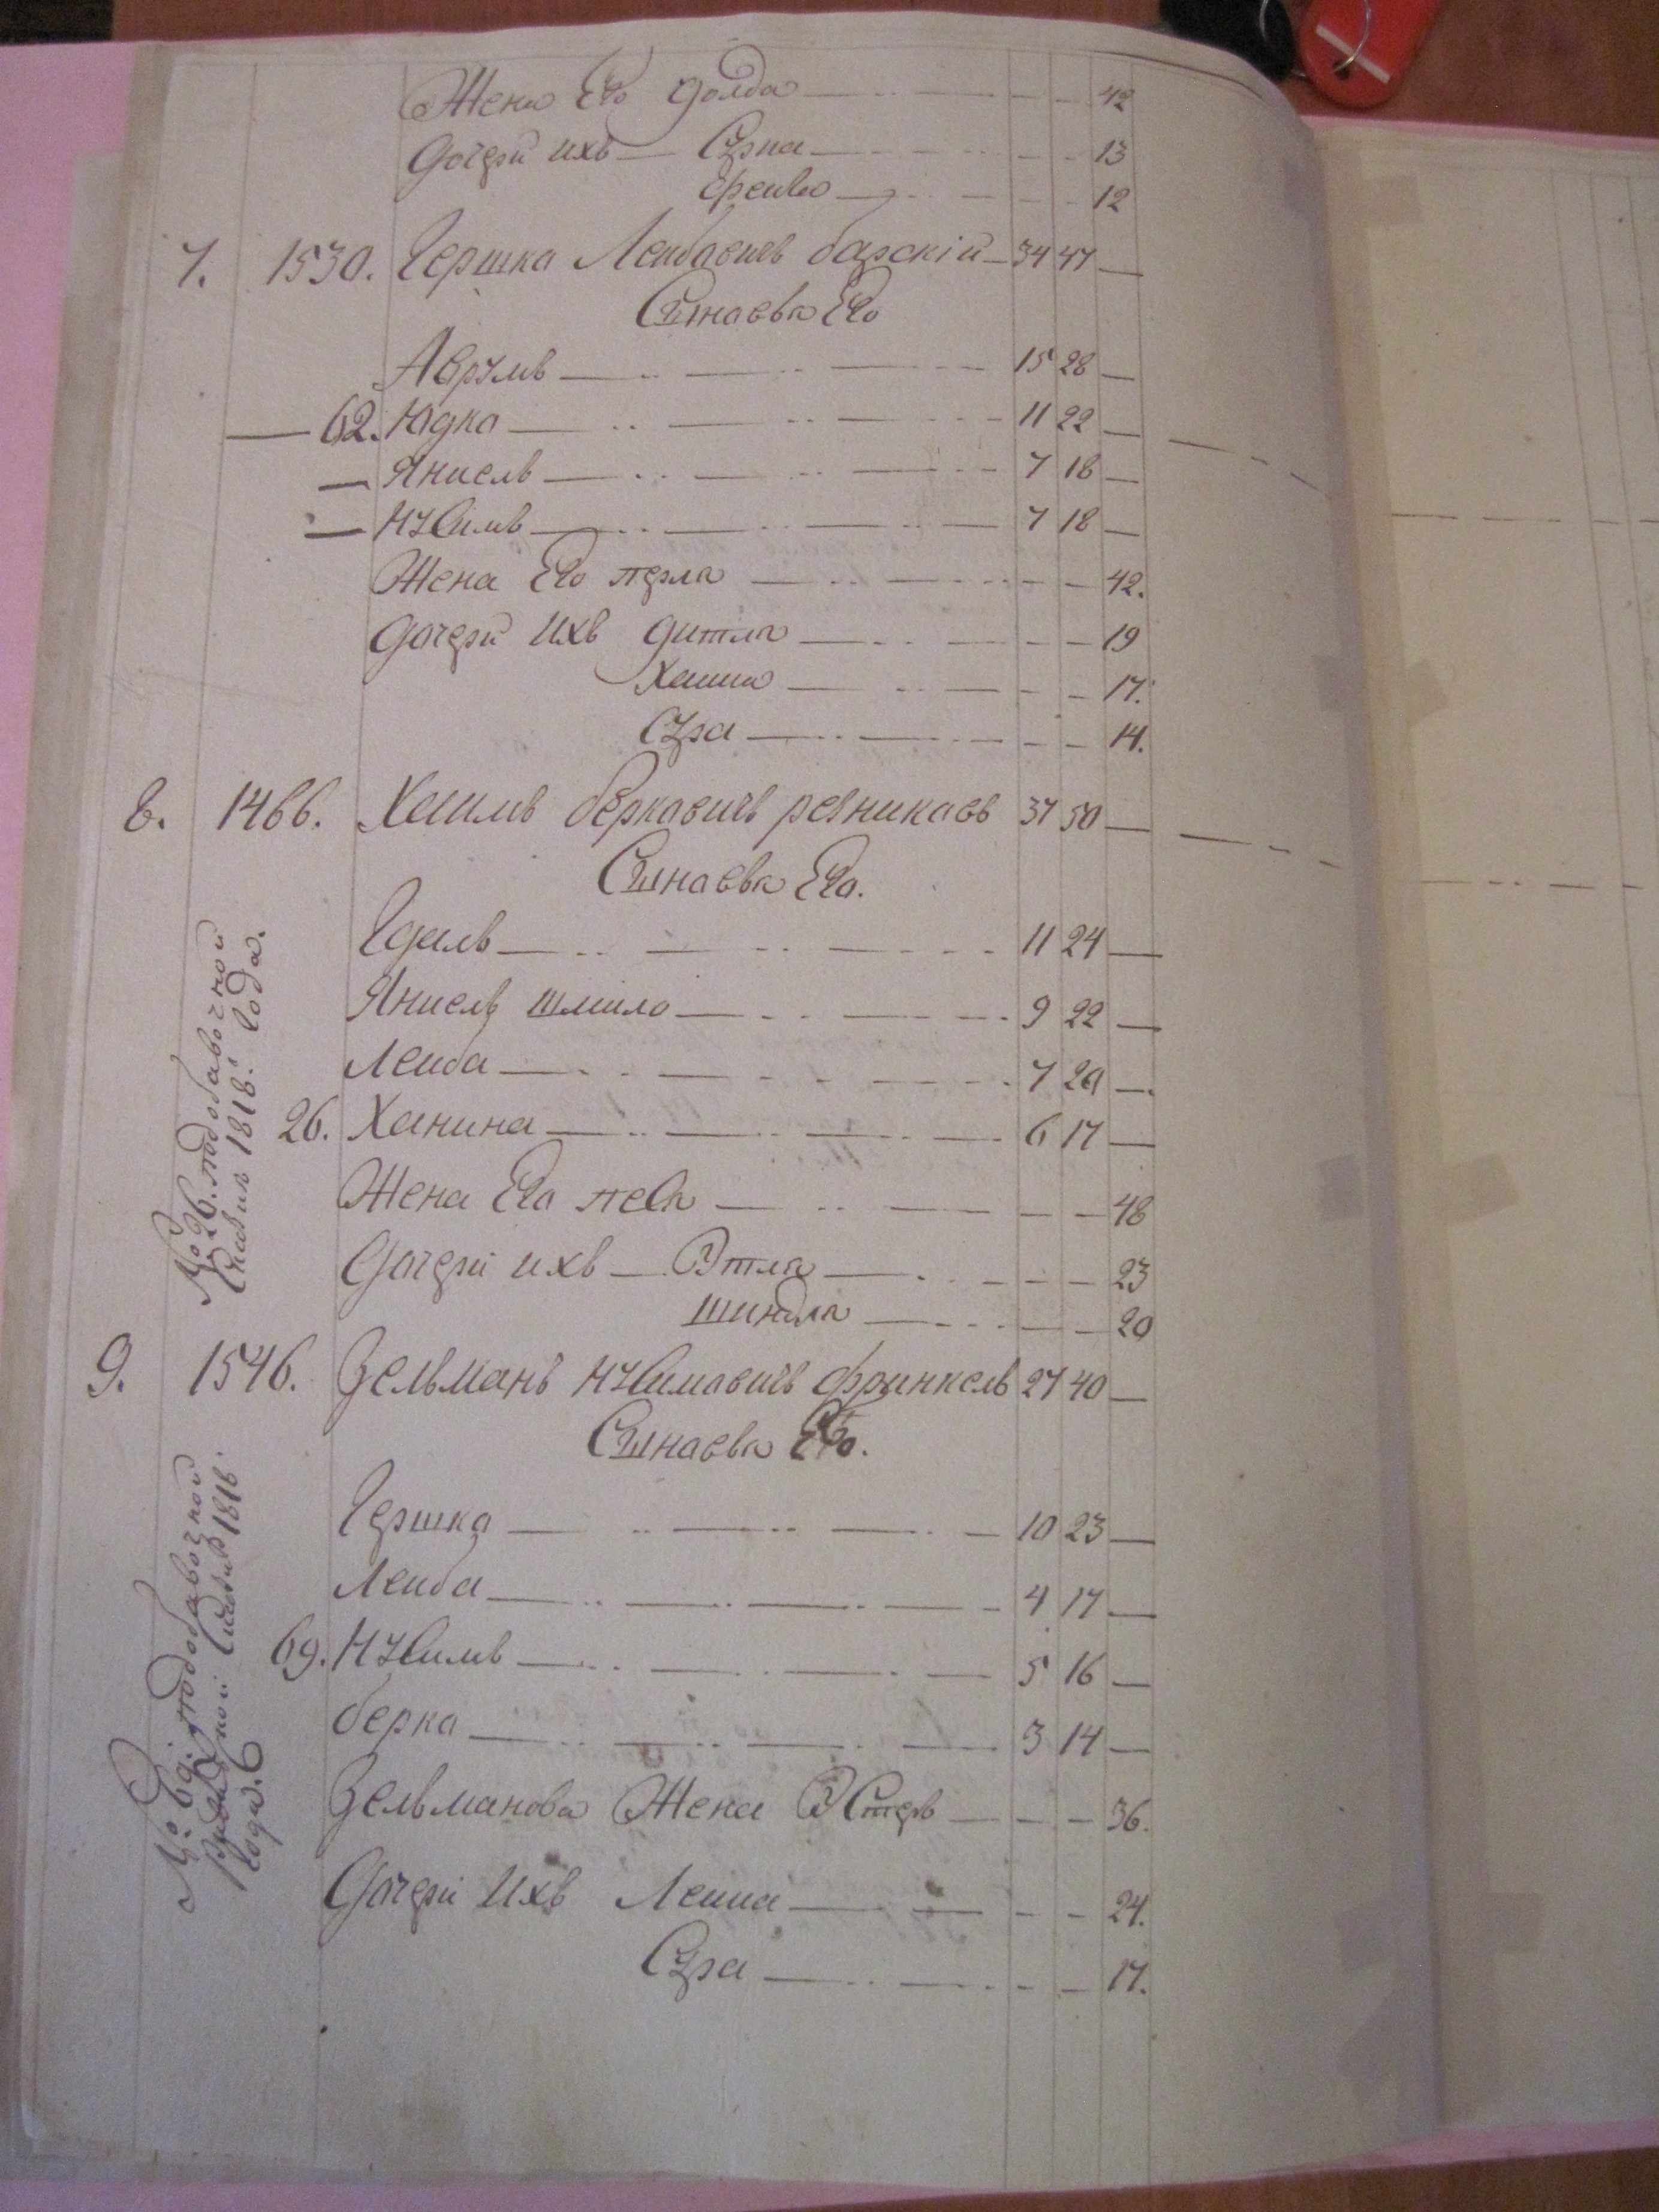 Жена Его Голда — — 42
Дочери ихъ — Сурка — — 13
Фейга — — 12
7. 1530. Гершка Лейбовичъ барскій — 34 47 —
Сыновья Его
Аврумъ — — 15 28 —
— 62. Юдка — — 11 22 —
— Янкель — — 7 18 —
— Нухимъ — — 7 18 —
Жена Его перля — — 42.
Дочери Ихъ Дитля — — 19
Хаиша — — 17.
Сура — — 14.
8. 1466. Хаимъ берковичъ резниковъ 37 50 —
Сыновья Его.
Гдаль — — 11 24 —
Янкель Шмило — — 9 22 —
Лейба — — 7 20 —
26. Ханина — — 6 17 —
Жена Его песя — — 48
Дочери ихъ — Этля — — 23
Шиндля — — 20
№ 26. по добавочной
1818. Года.
9. 1546. Зельманъ Нухимовичъ френкель 27 40 —
Сыновья Его.
Гершка — — 10 23 —
Лейба — — 4 17 —
69. Нухимъ — — 5 16 —
берка — — 3 14 —
Зельманова Жена Эстеръ — — 36.
Дочери Ихъ Лейка — — 24.
Сура — — 17.
№ 69. по добавочной
1818.
года.